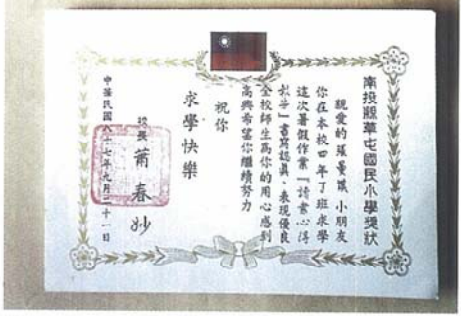 南投縣草屯國民小學獎狀
親愛的張曼 小朋友
你在本校四年丁班求學
這次暑假作業「讀書心得
」書寫認真、表現優良
全校師生為你的用心感到
高興希望你繼續努力
祝你
求學快樂
校長 蕭春妙
中華民國八十七年九月二十一日